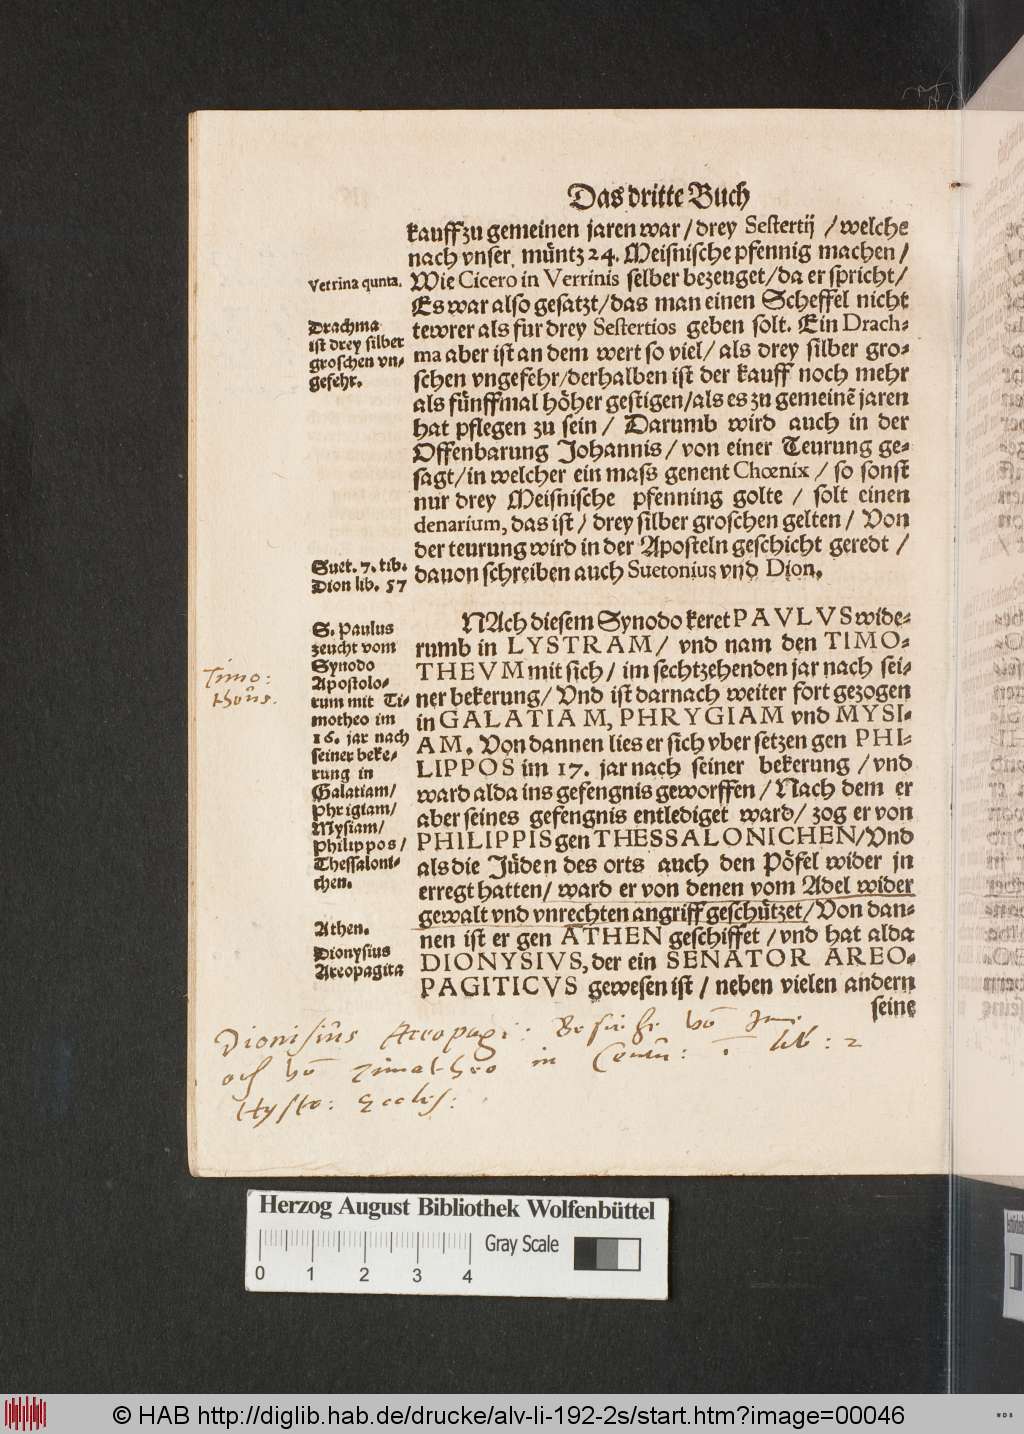 Das dritte Buch
kauff zu gemeinen jaren war / drey Sestertij / welche
nach vnser müntz 24. Meisnische pfennig machen /
Wie Cicero in Verrinis selber bezeuget / da er spricht /
Es war also gesatzt / das man einen Scheffel nicht
tewrer als fur drey Sestertios geben solt. Ein Drach-
ma aber ist an dem wert so viel / als drey silber gro-
schen vngefehr / derhalben ist der kauff noch mehr
als fünffmal höher gestigen / als es zu gemeinē jaren
hat pflegen zu sein / Darumb wird auch in der
Offenbarung Johannis / von einer Teurung ge-
sagt / in welcher ein mass genent Chœnix / so sonst
nur drey Meisnische pfenning golte / solt einen
denarium, das ist / drey silber groschen gelten / Von
der teurung wird in der Aposteln geschicht geredt /
dauon schreiben auch Suetonius vnd Dion.
Verrina qunta.
Drachma
ist drey silber
groschen vn-
gefehr.
Suet. 7. tib.
Dion lib. 57
NAch diesem Synodo keret PAVLVS wide-
rumb in LYSTRAM / vnd nam den TIMO-
THEVM mit sich / im sechtzehenden jar nach sei-
ner bekerung / Vnd ist darnach weiter fort gezogen
in GALATIAM, PHRYGIAM vnd MYSI-
AM. Von dannen lies er sich vber setzen gen PHI-
LIPPOS im 17. jar nach seiner bekerung / vnd
ward alda ins gefengnis geworffen / Nach dem er
aber seines gefengnis entlediget ward / zog er von
PHILIPPIS gen THESSALONICHEN / Vnd
als die Jüden des orts auch den Pöfel wider jn
erregt hatten / ward er von denen vom Adel wider
gewalt vnd vnrechten angriff geschützet / Von dan-
nen ist er gen ATHEN geschiffet / vnd hat alda
DIONYSIVS, der ein SENATOR AREO-
PAGITICVS gewesen ist / neben vielen andern
seine
S. Paulus
zeucht vom
Synodo
Apostolo-
rum mit Ti-
motheo im
16. jar nach
seiner beke-
rung in
Galatiam /
Phrigiam /
Mysiam /
Philippos /
Thessaloni-
chen.
Athen.
Dionysius
Areopagita
Timo:
theus.
Dionisius Areopagi:
Timotheo in lib: 2
Hysto: Eccles:
Herzog August Bibliothek Wolfenbüttel
Gray Scale
0 1 2 3 4
© HAB http://diglib.hab.de/drucke/alv-li-192-2s/start.htm?image=00046